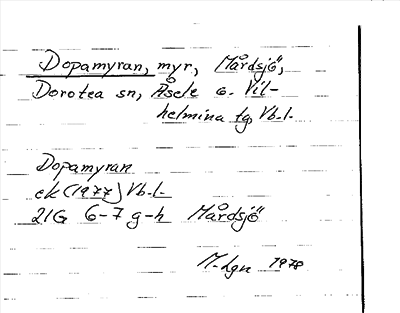 Dopamyran, myr, Mårdsjö,
Dorotea sn, Åsele o. Vil-
helmina tg, Vb.l.
Dopamyran
ek (1977) Vb.l
21G 6-7 g-h Mårdsjö
M-Lgn 1978